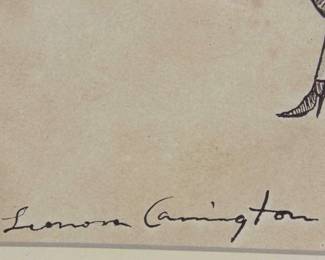 Leonora Carrington